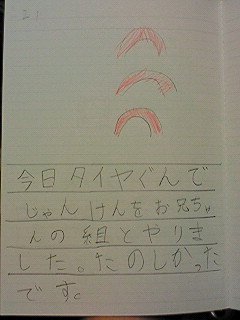 今日タイヤぐんで
じゃんけんをお兄ちゃ
んの組とやりま
した。たのしかった
です。